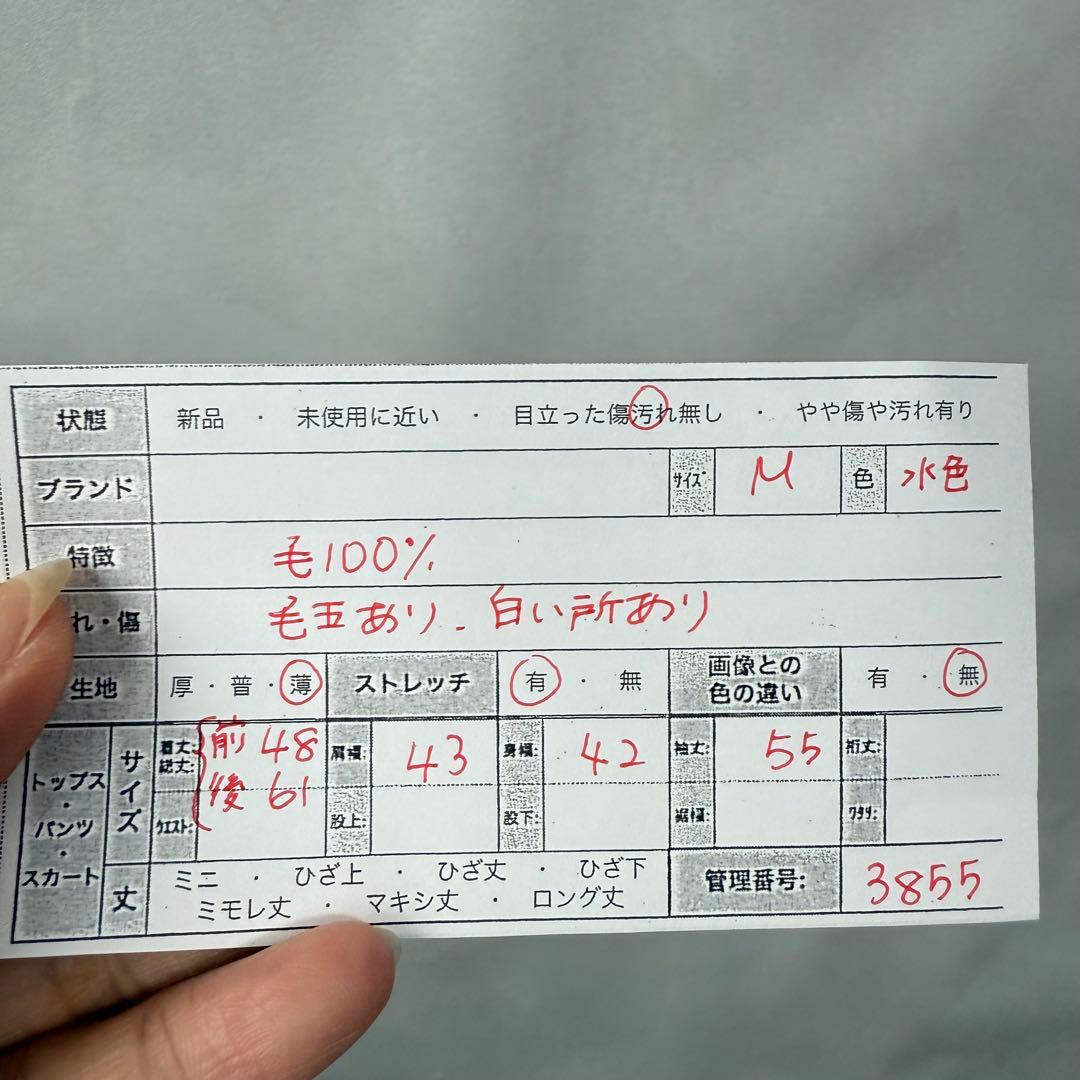 状態 新品 ・ 未使用に近い ・ 目立った傷汚れ無し ・ やや傷や汚れ有り
ブランド サイズ M 色 水色
特徴 毛100%
れ・傷 毛玉あり、白い所あり
生地 厚・普・薄 ストレッチ 有・無 画像との色の違い 有・無
トップス・パンツ・スカート サイズ 着丈: 総丈: 前48 後61 肩幅: 43 身幅: 42 袖丈: 55 裄丈:
ウエスト: 股上: 股下: 裾幅: ワタリ:
丈 ミニ ・ ひざ上 ・ ひざ丈 ・ ひざ下
ミモレ丈 ・ マキシ丈 ・ ロング丈
管理番号: 3855